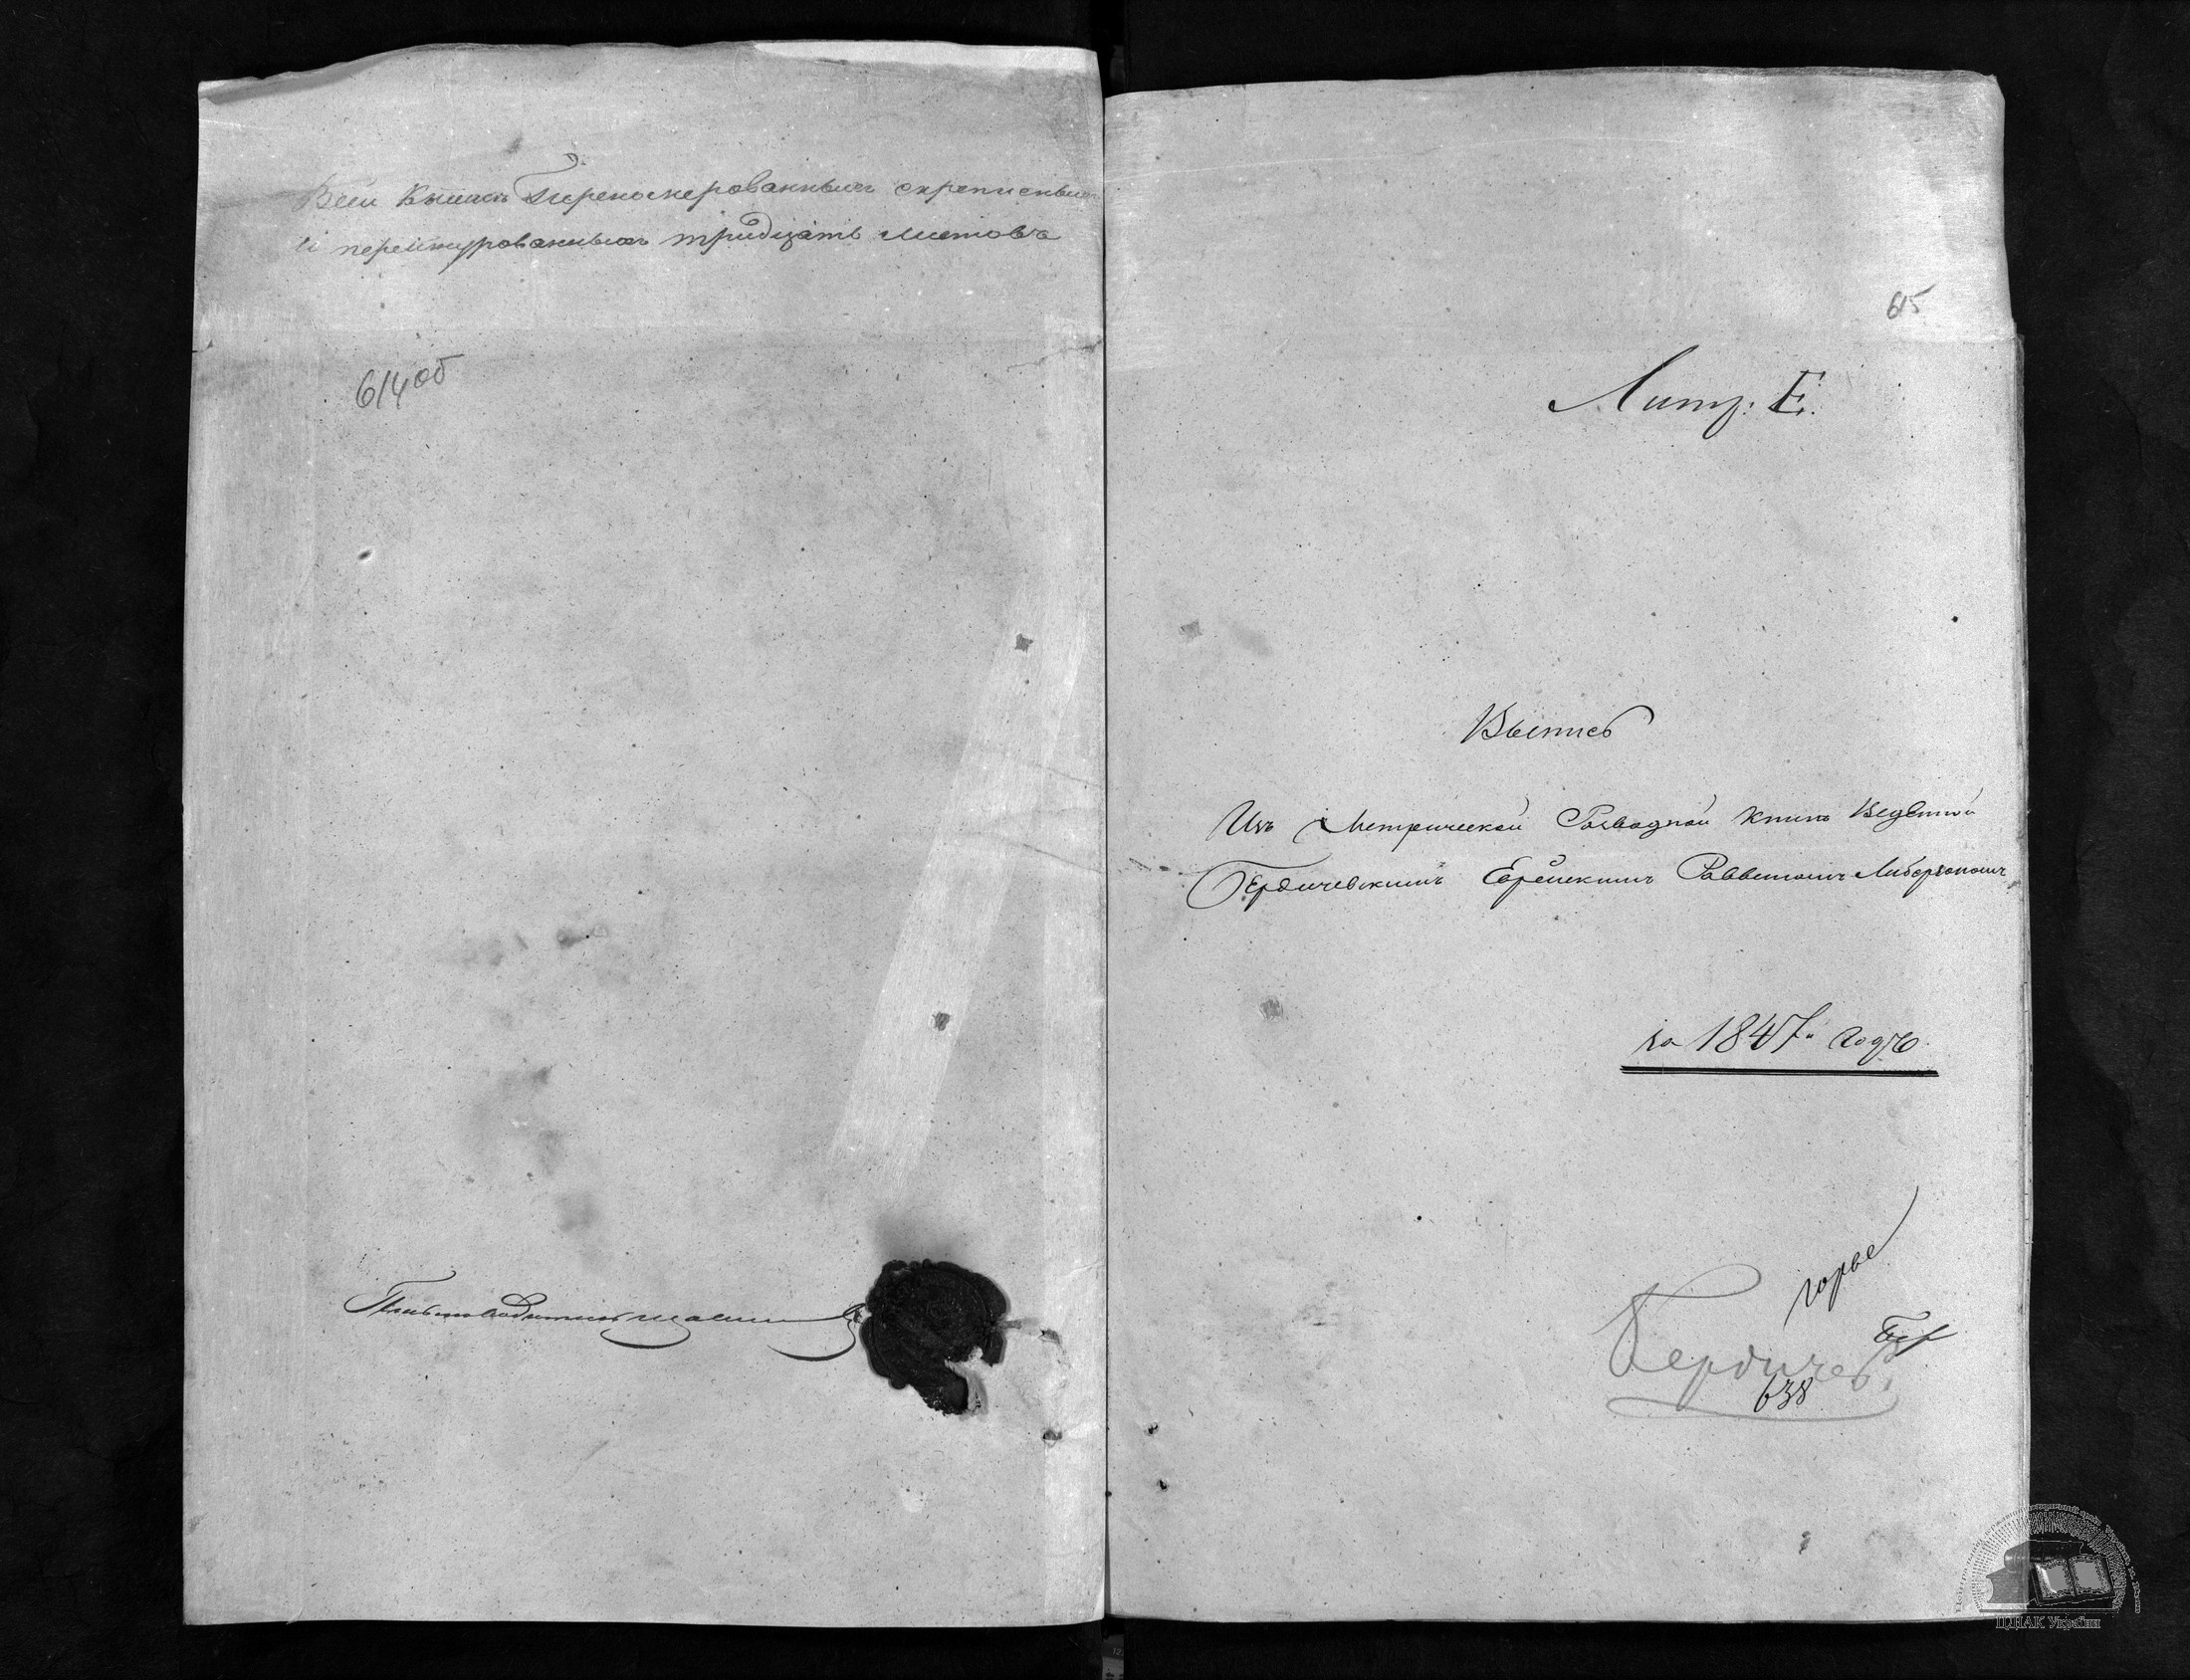 Всей книги Перенумерованныхъ скрепленныхъ
и перешнурованныхъ тридцать листовъ
614об
Письмоводитель
615
Литр: Е.
Выпись
Изъ Метрической Разводной книги Веденной
Бердичевскимъ Еврейскимъ Раввиномъ Либерзономъ
за 1847й годъ
Бер
Бердичев
638
ЦДІАК України